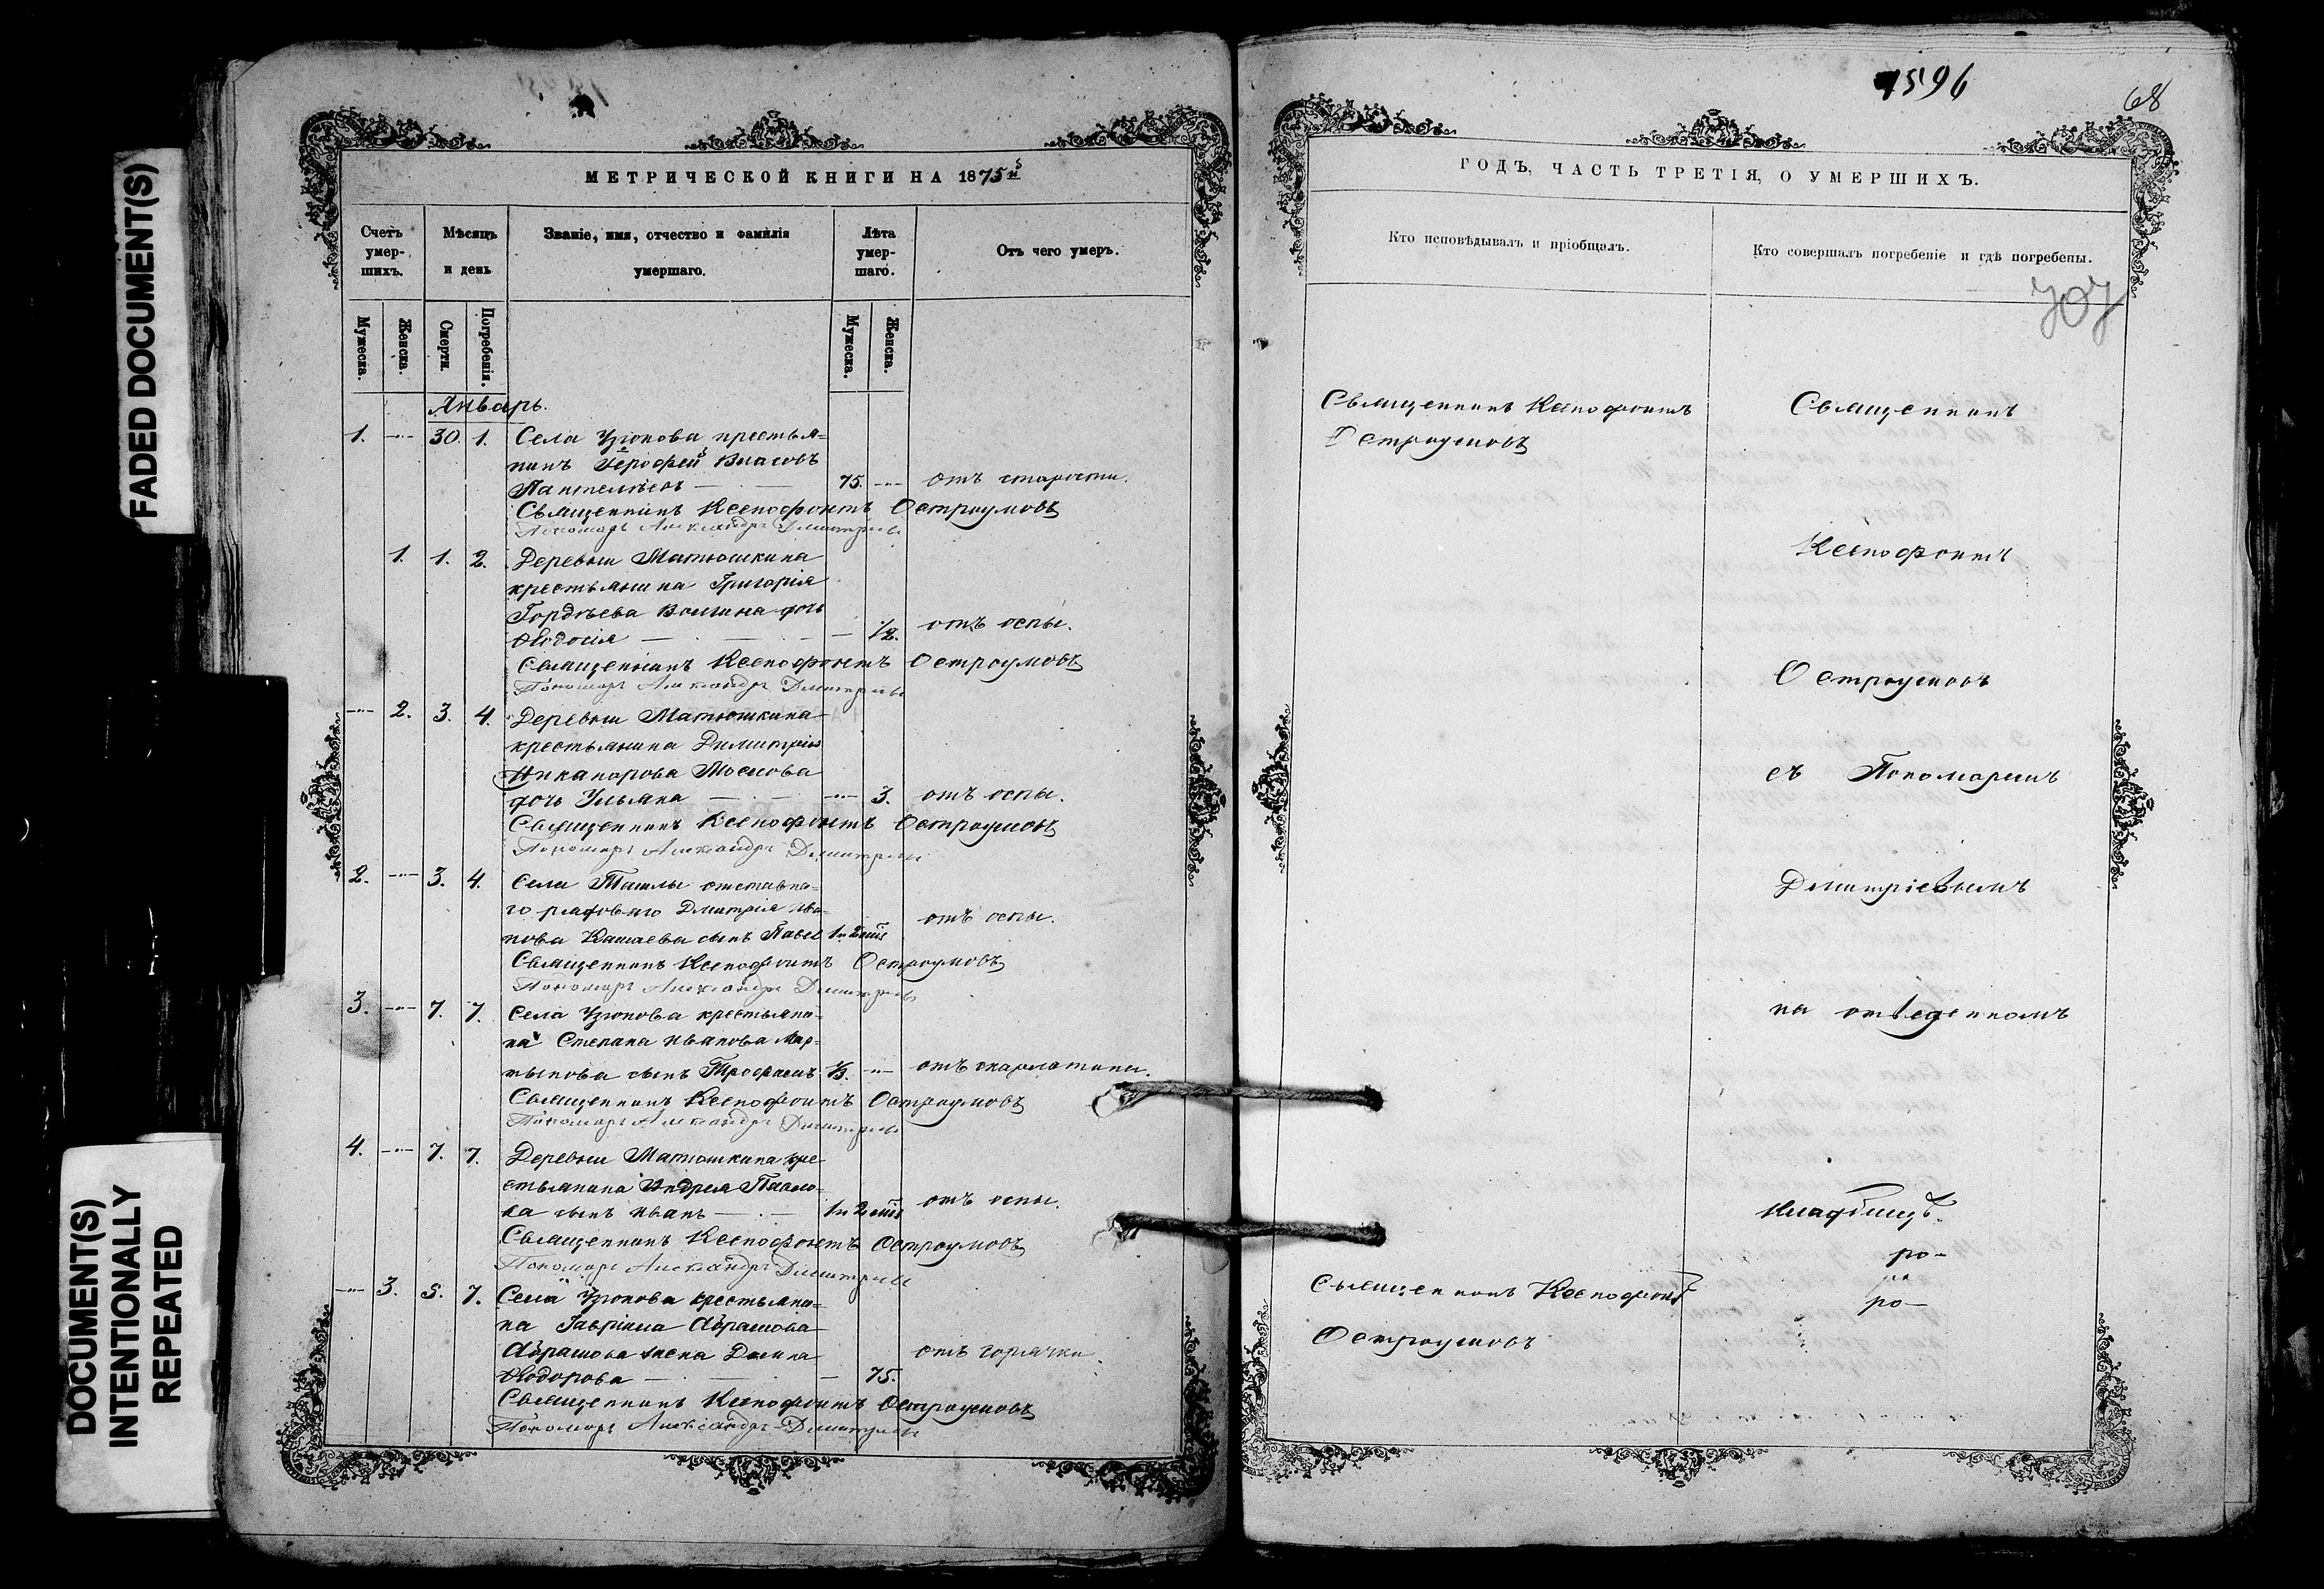 FADED DOCUMENT(S)
DOCUMENT(S)
INTENTIONALLY
REPEATED
МЕТРИЧЕСКОЙ КНИГИ НА 1875й
Счетъ умер-шихъ.
Мѣсяцъ и день
Званіе, имя, отчество и фамилія умершаго.
Лѣта умер-шаго.
Отъ чего умеръ.
Мужеска.
Женска.
Смерти.
Погребенія.
Мужеска.
Женска.
Январь.
1. 30. 1. Села Узюкова крестья=
нинъ Іерофей Власовъ
Пантелѣевъ 75. отъ старости.
Священникъ Ксенофонтъ Остроумовъ
Пономарь Александръ Димитріевъ
1. 1. 2. Деревни Матюшкина
крестьянина Григорія
Гордѣева Волгина дочь
Ѳеодосія 1/2. отъ оспы.
Священникъ Ксенофонтъ Остроумовъ
Пономарь Александръ Димитріевъ
2. 3. 4. Деревни Матюшкина
крестьянина Димитрія
Никанорова Мосцова
дочь Ульяна 3. отъ оспы.
Священникъ Ксенофонтъ Остроумовъ
Пономарь Александръ Димитріевъ
2. 3. 4. Села Ташлы отставна=
го рядового Дмитрія Ива=
нова Кашаева сынъ Павел 1 и 2 мѣс отъ оспы.
Священникъ Ксенофонтъ Остроумовъ
Пономарь Александръ Димитріевъ
3. 7. 7. Села Узюкова крестьяни=
на Степана Иванова Мар=
тынова сынъ Трофимъ 1/3. отъ скарлатины.
Священникъ Ксенофонтъ Остроумовъ
Пономарь Александръ Димитріевъ
4. 7. 7. Деревни Матюшкина кре
стьянина Андрея Павло-
ва сынъ Иванъ 1 и 2 мѣс отъ оспы.
Священникъ Ксенофонтъ Остроумовъ
Пономарь Александръ Димитріевъ
3. 5. 7. Села Узюкова крестьяни=
на Гавріила Абрамова
Абрамова жена Домна
Ѳеодорова 75. отъ горячки.
Священникъ Ксенофонтъ Остроумовъ
Пономарь Александръ Димитріевъ
1596
68
ГОДЪ, ЧАСТЬ ТРЕТІЯ, О УМЕРШИХЪ.
Кто исповѣдывалъ и пріобщалъ.
Кто совершалъ погребеніе и гдѣ погребены.
707
Священникъ Ксенофонтъ
Остроумовъ
Священникъ
Ксенофонтъ
Остроумовъ
съ Пономаремъ
Дмитріевымъ
на отведенномъ
кладбищѣ.
Священникъ Ксенофонтъ
Остроумовъ